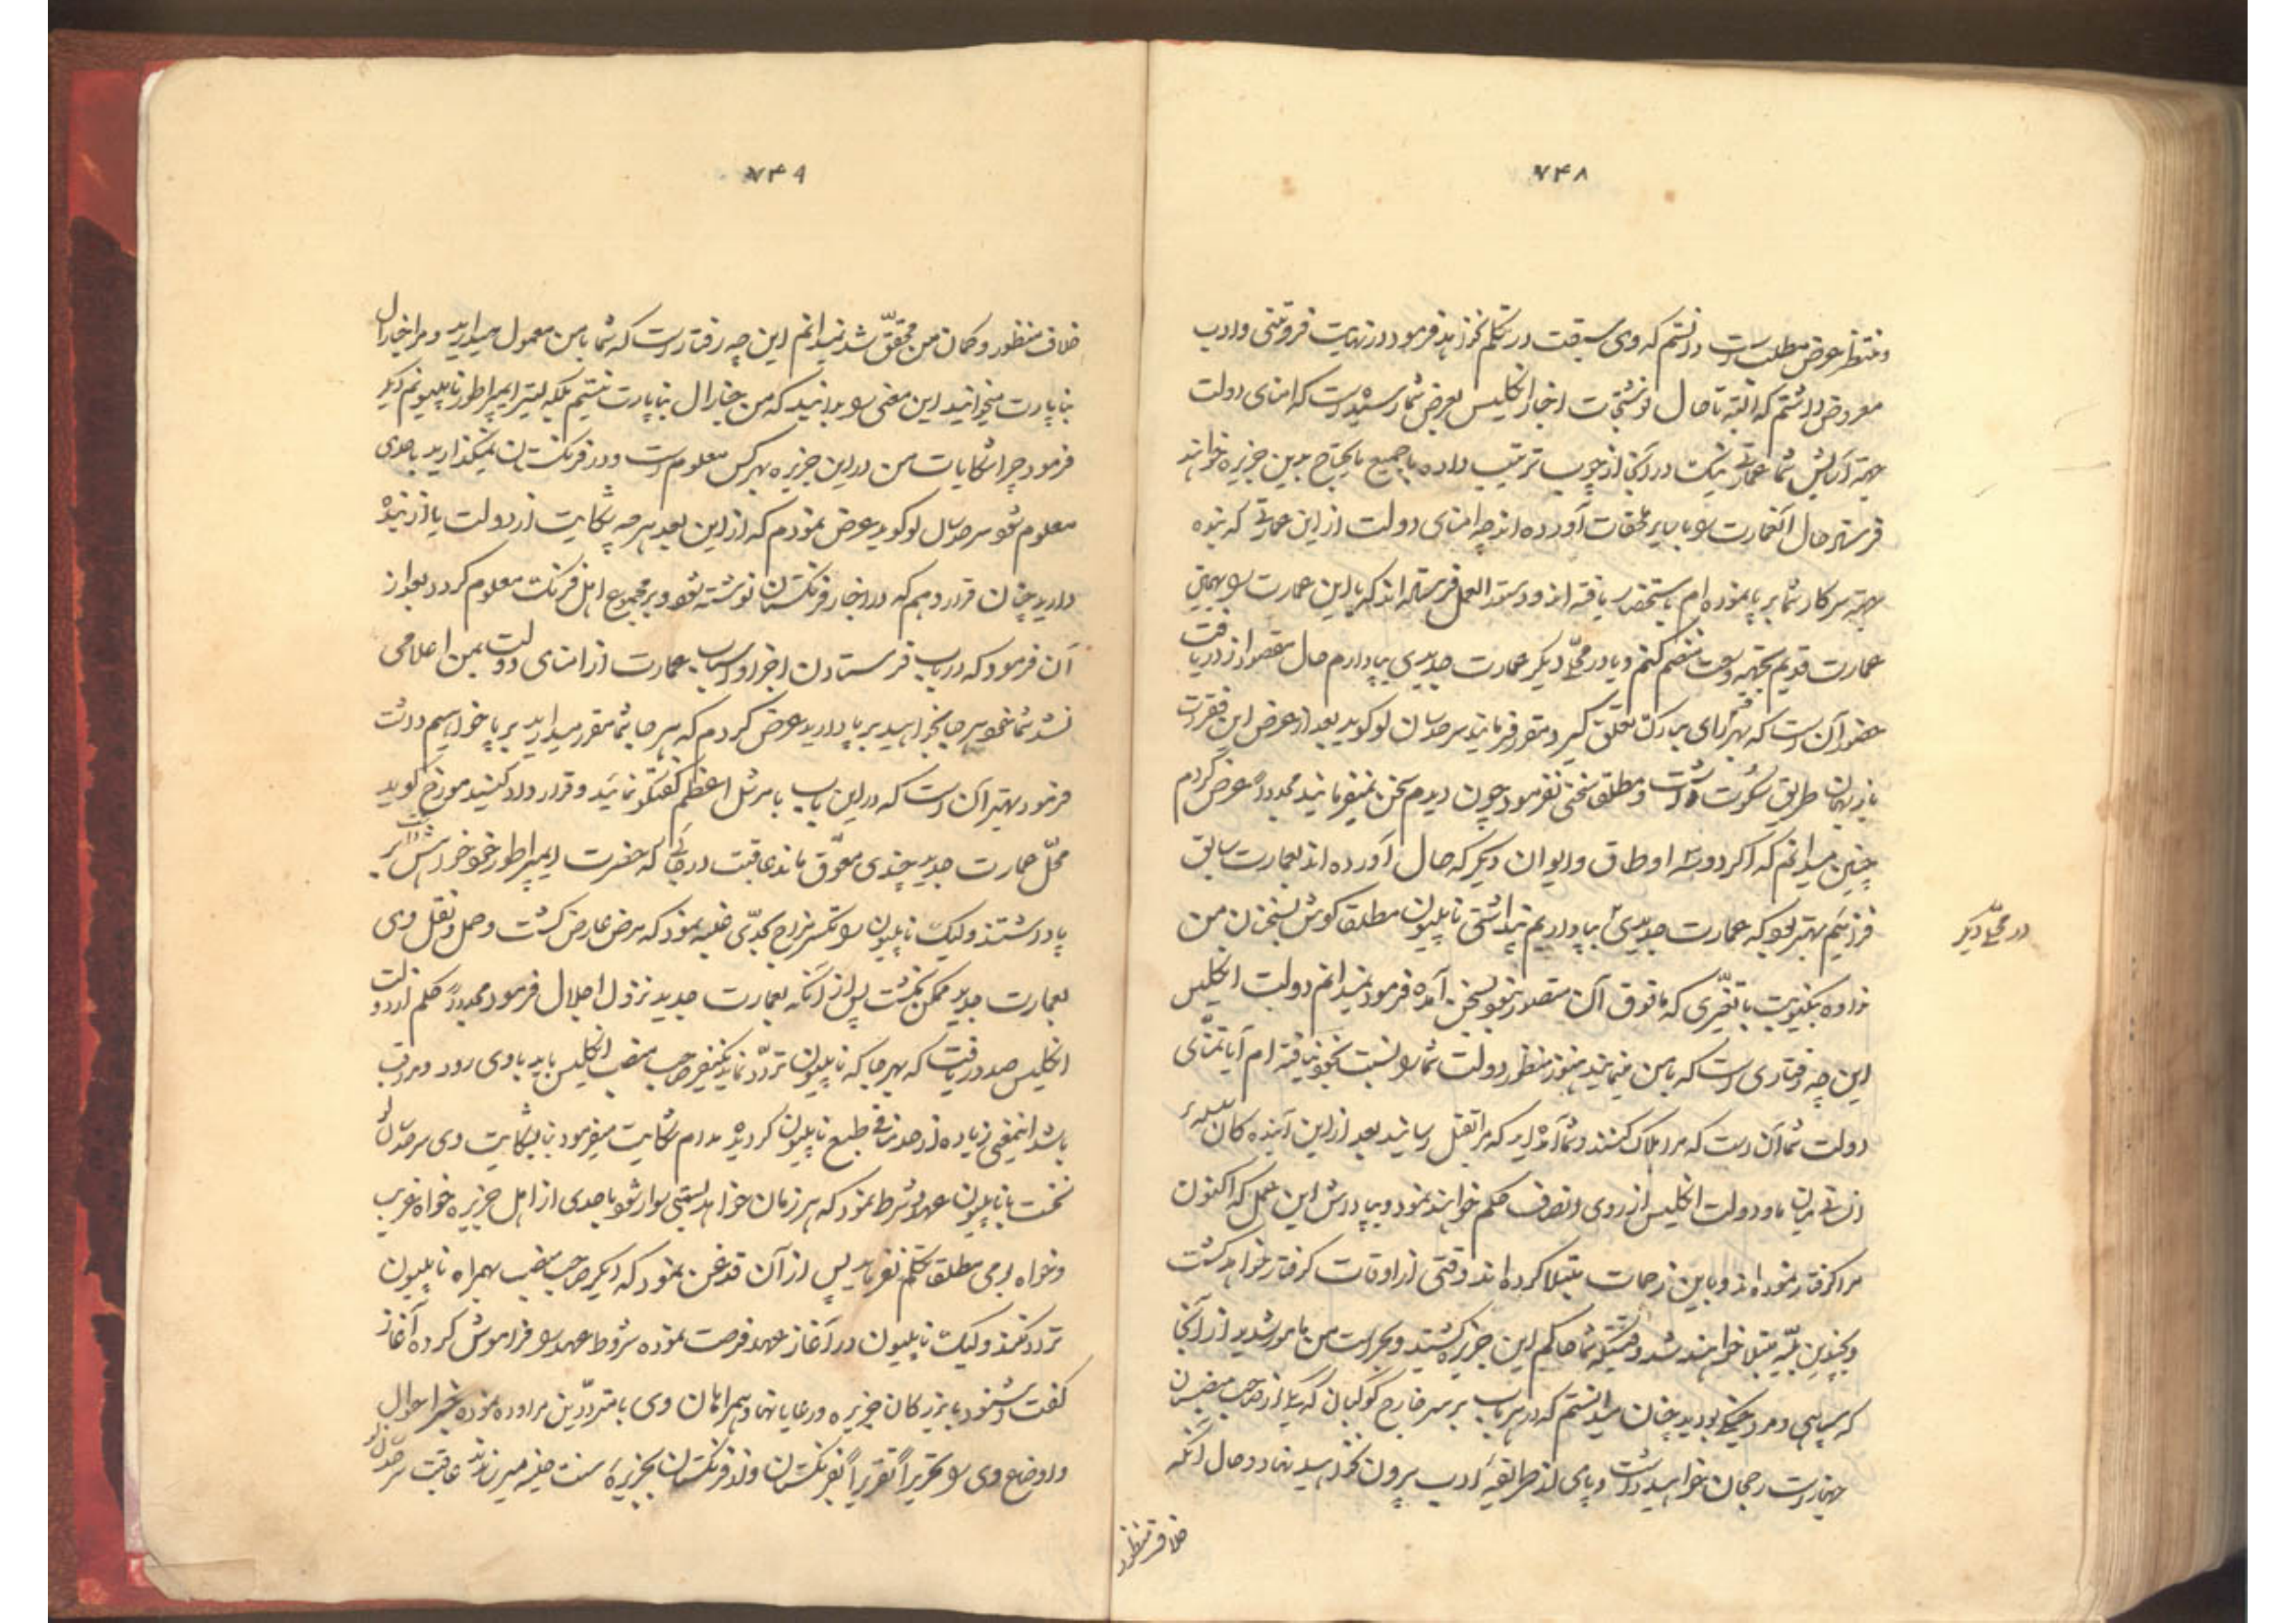 ۷۴۸
و منتظر عرض مطلب است دانستم که وی سبقت در تکلم نخواهد فرمود در نهایت فروتنی و ادب
معروض داشتم که البته تا حال نوشتجات اخبار انگلیس بعرض شما رسیده است که امنای دولت
بجهة آسایش شما عمارتی نیک در آنجا از چوب ترتیب داده با جمیع مایحتاج بدین جزیره خواهند
فرستاد حال آنعمارت را با سایر ملحقات آورده اند چه امنای دولت از این عمارتی که بنده
بجهة سرکار شما بر پا نموده ام استحضار یافته اند و دستورالعمل فرستاده اند که یا این عمارت را بهمین
عمارت قدیم بجهة وسعت منضم کنم و یا در محلّ دیگر عمارت جدیدی بپا دارم حال مقصود از دریافت
حضور آن است که بهر قسم رای مبارک تعلق گیرد مقرر فرمایند سر حدسان لو گوید بعد از عرض این فقرات
باز بهمان طریق سکوت داشت و مطلقا سخنی نفرمود چون دیدم سخن نمیفرمایند مجدداً عرض کردم
چنین میدانم که اگر دو سه اوطاق و ایوان دیگر که حال آورده اند بعمارت سابق
فزائیم بهتر بود که عمارت جدیدی بپا داریم پنداشتی ناپلیون مطلقا گوش بسخنان من
در محلّ دیگر
نداده بکینونیت با تغیّری که مافوق آن متصور نبود بسخن آمده فرمود نمیدانم دولت انگلیس
این چه رفتاری است که با من مینمایند هنوز منظور دولت شما را نسبت بخود نیافته ام آیا تمنّای
دولت شما آن است که مرا هلاک کنند و شما آمده اید که مرا بقتل رسانید بعد از این آینده گان
میان ما و دولت انگلیس از روی انصاف حکم خواهند نمود و بپاداش این عمل که اکنون
مرا گرفتار نموده اند و باین زحمات مبتلا کرده اند وقتی از اوقات گرفتار خواهد گشت
و بچنین بلیّه مبتلا خواهند شد وقتیکه شما حاکم این جزیره گشتید و بحراست من مامور شدید از آنجا
که سپاهی و مرد جنگی بودید چنان میدانستم که در هر باب بر سر خارج گوکبان که یکی از صاحب منصبان
بهادر است رجحان خواهید داشت و پای از طریقهٔ ادب بیرون نخواهید نهاد و حال آنکه
خلاف منظور
۷۴۹
خلاف منظور و گمان من محقّق شد نمیدانم این چه رفتار است که شما با من معمول میدارید و مرا جنارال
بناپارت میخوانید این معنی را بدانید که من جنارال بناپارت نیستم بلکه ایمپراطور ناپلیونم دیگر
فرمود چرا شکایات من در این جزیره بهر کس معلوم است و در فرنگستان نمیگذارید باحدی
معلوم شود سر حدسال لو گوید عرض نمودم که از این بعد هر چه شکایت از دولت یا از بنده
دارید چنان قرار دهم که در اخبار فرنگستان نوشته شود و بر مجموع اهل فرنگ معلوم گردد بعد از
آن فرمود که در باب فرستادن اجزا و اسباب عمارت از امنای دولت بمن اعلامی
نشد شما خود هر جا بخواهید بر پا دارید عرض کردم که هر جا شما مقرر میدارید بر پا خواهیم داشت
فرمود بهتر آن است که در این باب با مرشل اعظم گفتگو نمائید و قرار داد کنید مورخ گوید
محلّ عمارت جدید چندی معوّق ماند عاقبت در جائی که حضرت ایمپراطور خود خواهش داشت بر
پا داشتند ولیک ناپلیون را تکسر مزاج بحدّی غلبه نمود که مرض عارض گشت و حمل و نقل وی
بعمارت جدید ممکن نگشت پس از آنکه بعمارت جدید نزول اجلال فرمود مجدداً حکم از دولت
انگلیس صدور یافت که بهر جا که ناپلیون تردّد نماید یکنفر صاحب منصب انگلیس باید با وی رود و مراقب
باشد اینمعنی زیاده از حد منافی طبع ناپلیون گردیده مدام شکایت میفرمود بنا بشکایت وی سر حدسان لو
نخست با ناپلیون عهد و شرط نمود که هر زمان خواهد بستی سوار شود با احدی از اهل جزیره خواه غریب
و خواه بومی مطلقا تکلم نفرماید پس از آن قدغن نمود که دیگر صاحب منصب بهمراه ناپلیون
تردد نکند ولیک ناپلیون در آغاز عهد فرصت نموده شروط عهد را فراموش کرده آغاز
گفت و شنود با بزرگان جزیره و رعایا نهاد و همراهان وی با متردّدین مراوده نموده خبر احوال
و اوضاع وی را تحریراً تقریراً بفرنگستان و از فرنگستان بجزیرهٔ سنت حلینه میرساندند عاقبت سر حدسن لو